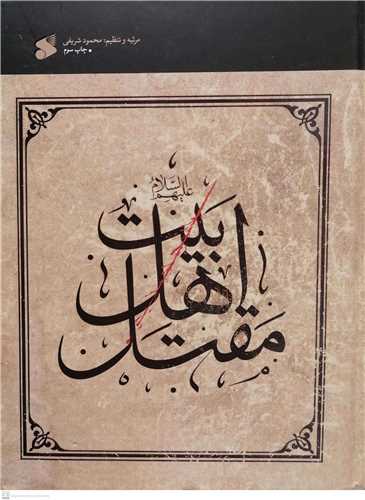 مرثیه و تنظیم: محمود شریفی
• چاپ سوم
مقتل
اهل
بیت
علیهم السلام